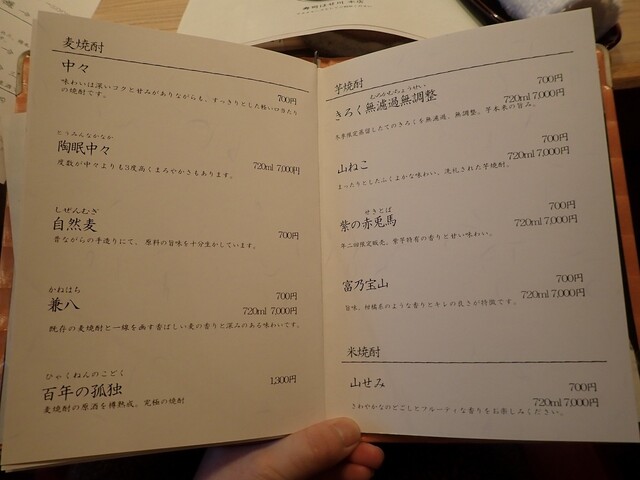 麦焼酎
中々
700円
味わいは深いコクと甘みがありながらも、すっきりとした軽い口当たり
の焼酎です。
とうみんなかなか
陶眠中々
720ml 7,000円
度数が中々よりも3度高くまろやかさもあります。
しぜんむぎ
自然麦
700円
昔ながらの手造りにて、原料の旨味を十分生かしています。
かねはち
兼八
700円
720ml 7,000円
既存の麦焼酎と一線を画す香ばしい麦の香りと深みのある味わいです。
ひゃくねんのこどく
百年の孤独
1,300円
麦焼酎の原酒を樽熟成。究極の焼酎
芋焼酎
むろかむちょうせい
きろく無濾過無調整
700円
720ml 7,000円
冬季限定蒸留したてのきろくを無濾過、無調整。芋本来の旨み。
山ねこ
700円
720ml 7,000円
まったりとしたふくよかな味わい。洗化された芋焼酎。
せきとば
紫の赤兎馬
700円
720ml 7,000円
年二回限定販売。紫芋特有の香りと甘い味わい。
富乃宝山
700円
720ml 7,000円
旨味、柑橘系のような香りとキレの良さが特徴です。
米焼酎
山せみ
700円
720ml 7,000円
さわやかなのどごしとフルーティな香りをお楽しみください。